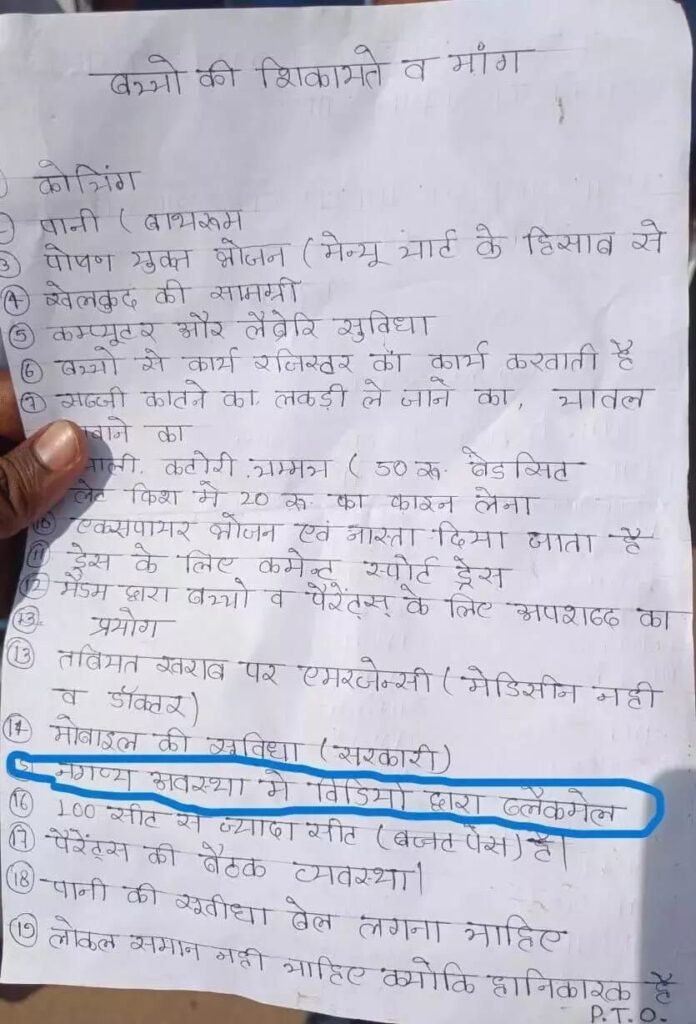 बच्चो की शिकायते व मांग
कोचिंग
पानी ( बाथरूम
③ पोषण युक्त भोजन ( मेन्यू चार्ट के हिसाब से
④ खेलकुद की सामग्री
⑤ कम्प्यूटर और लैब्रेरि सुविधा
⑥ बच्चो से कार्य रजिस्टर का कार्य करवाती है
⑦ सब्जी काटने का. लकड़ी ले जाने का, चावल
का
कटोरी. चम्मच ( 50 रू. बेडसिट
लेट फिश मे 20 रू. का फाइन लेना
⑩ एक्सपायर भोजन एवं नास्ता दिया जाता है
⑪ ड्रेस के लिए कमेन्ट स्पोर्ट ड्रेस
⑫ मैडम द्वारा बच्चो व पैरेंट्स् के लिए अपशब्द का
प्रयोग
⑬ तबियत खराब पर एमरजेन्सी ( मेडिसीन नही
व डॉक्टर )
⑭ मोबाइल की सुविधा ( सरकारी )
अवस्था मे विडियो द्वारा ब्लैकमेल
⑯ 100 सीट से ज्यादा सीट ( बजट पेस ) है।
⑰ पैरेंट्स की बैठक व्यवस्था।
⑱ पानी की सुवीधा बेल लगना चाहिए
⑲ लोकल समान नही चाहिए क्योकि हानिकारक है
P.T.O.